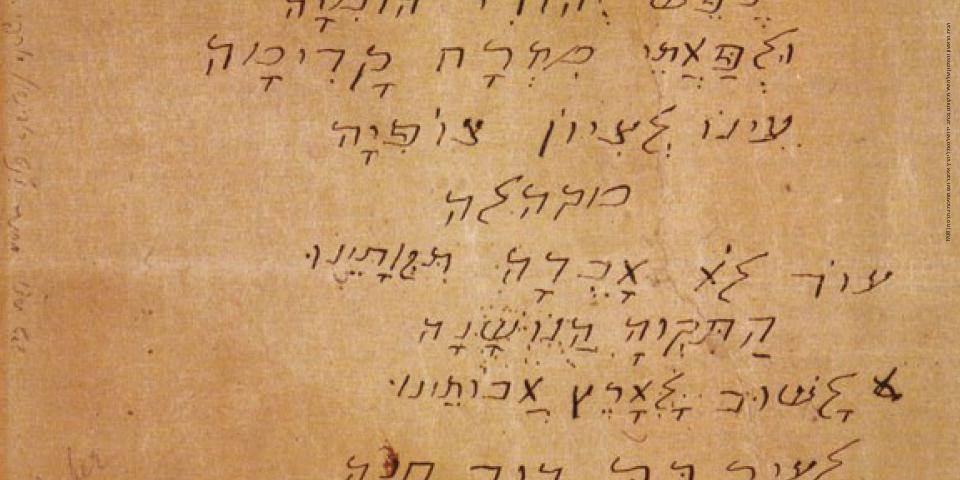 נֶפֶשׁ יְהוּדִי הוֹמִיָּה
וּלְפַאֲתֵי מִזְרָח קָדִימָה
עֵינוֹ לְצִיּוֹן צוֹפִיָּה
מוקהלה
עוֹד לֹא אָבְדָה תִּקְוָתֵינוּ.
הַתִּקְוָה הַנּוֹשָׁנָה
לָשׁוּב לְאֶרֶץ אֲבוֹתֵינוּ.
לעיר בה דוד חנה